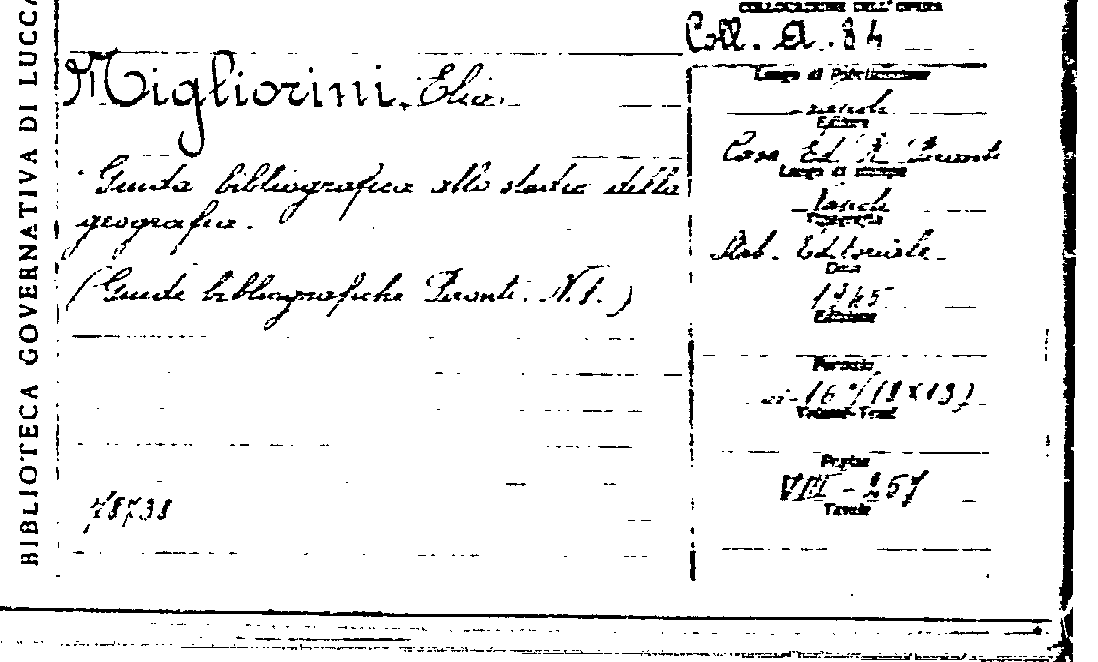 BIBLIOTECA GOVERNATIVA DI LUCCA
COLLOCAZIONE DELL'OPERA
Coll. A. 84
Migliorini, Elio.
Guida bibliografica allo studio della
geografia.
(Guide bibliografiche Pironti. N. 1.)
78738
Luogo di Pubblicazione
Napoli
Editore
Casa Ed. R. Pironti
Luogo di stampa
Napoli
Tipografia
Lab. Editoriale
Data
1945
Edizione
Formato
in-16°/(18x13)
Volumi-Tomi
Pagine
VIII-257
Tavole